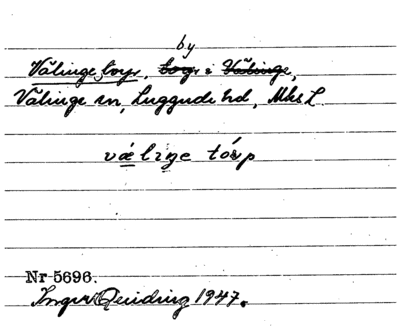 by
Välinge torp, torp i Välinge,
Välinge sn, Luggude hd, Mhs L.
vä̀liŋe tórp
Nr 5696.
Inger Reiding 1947.